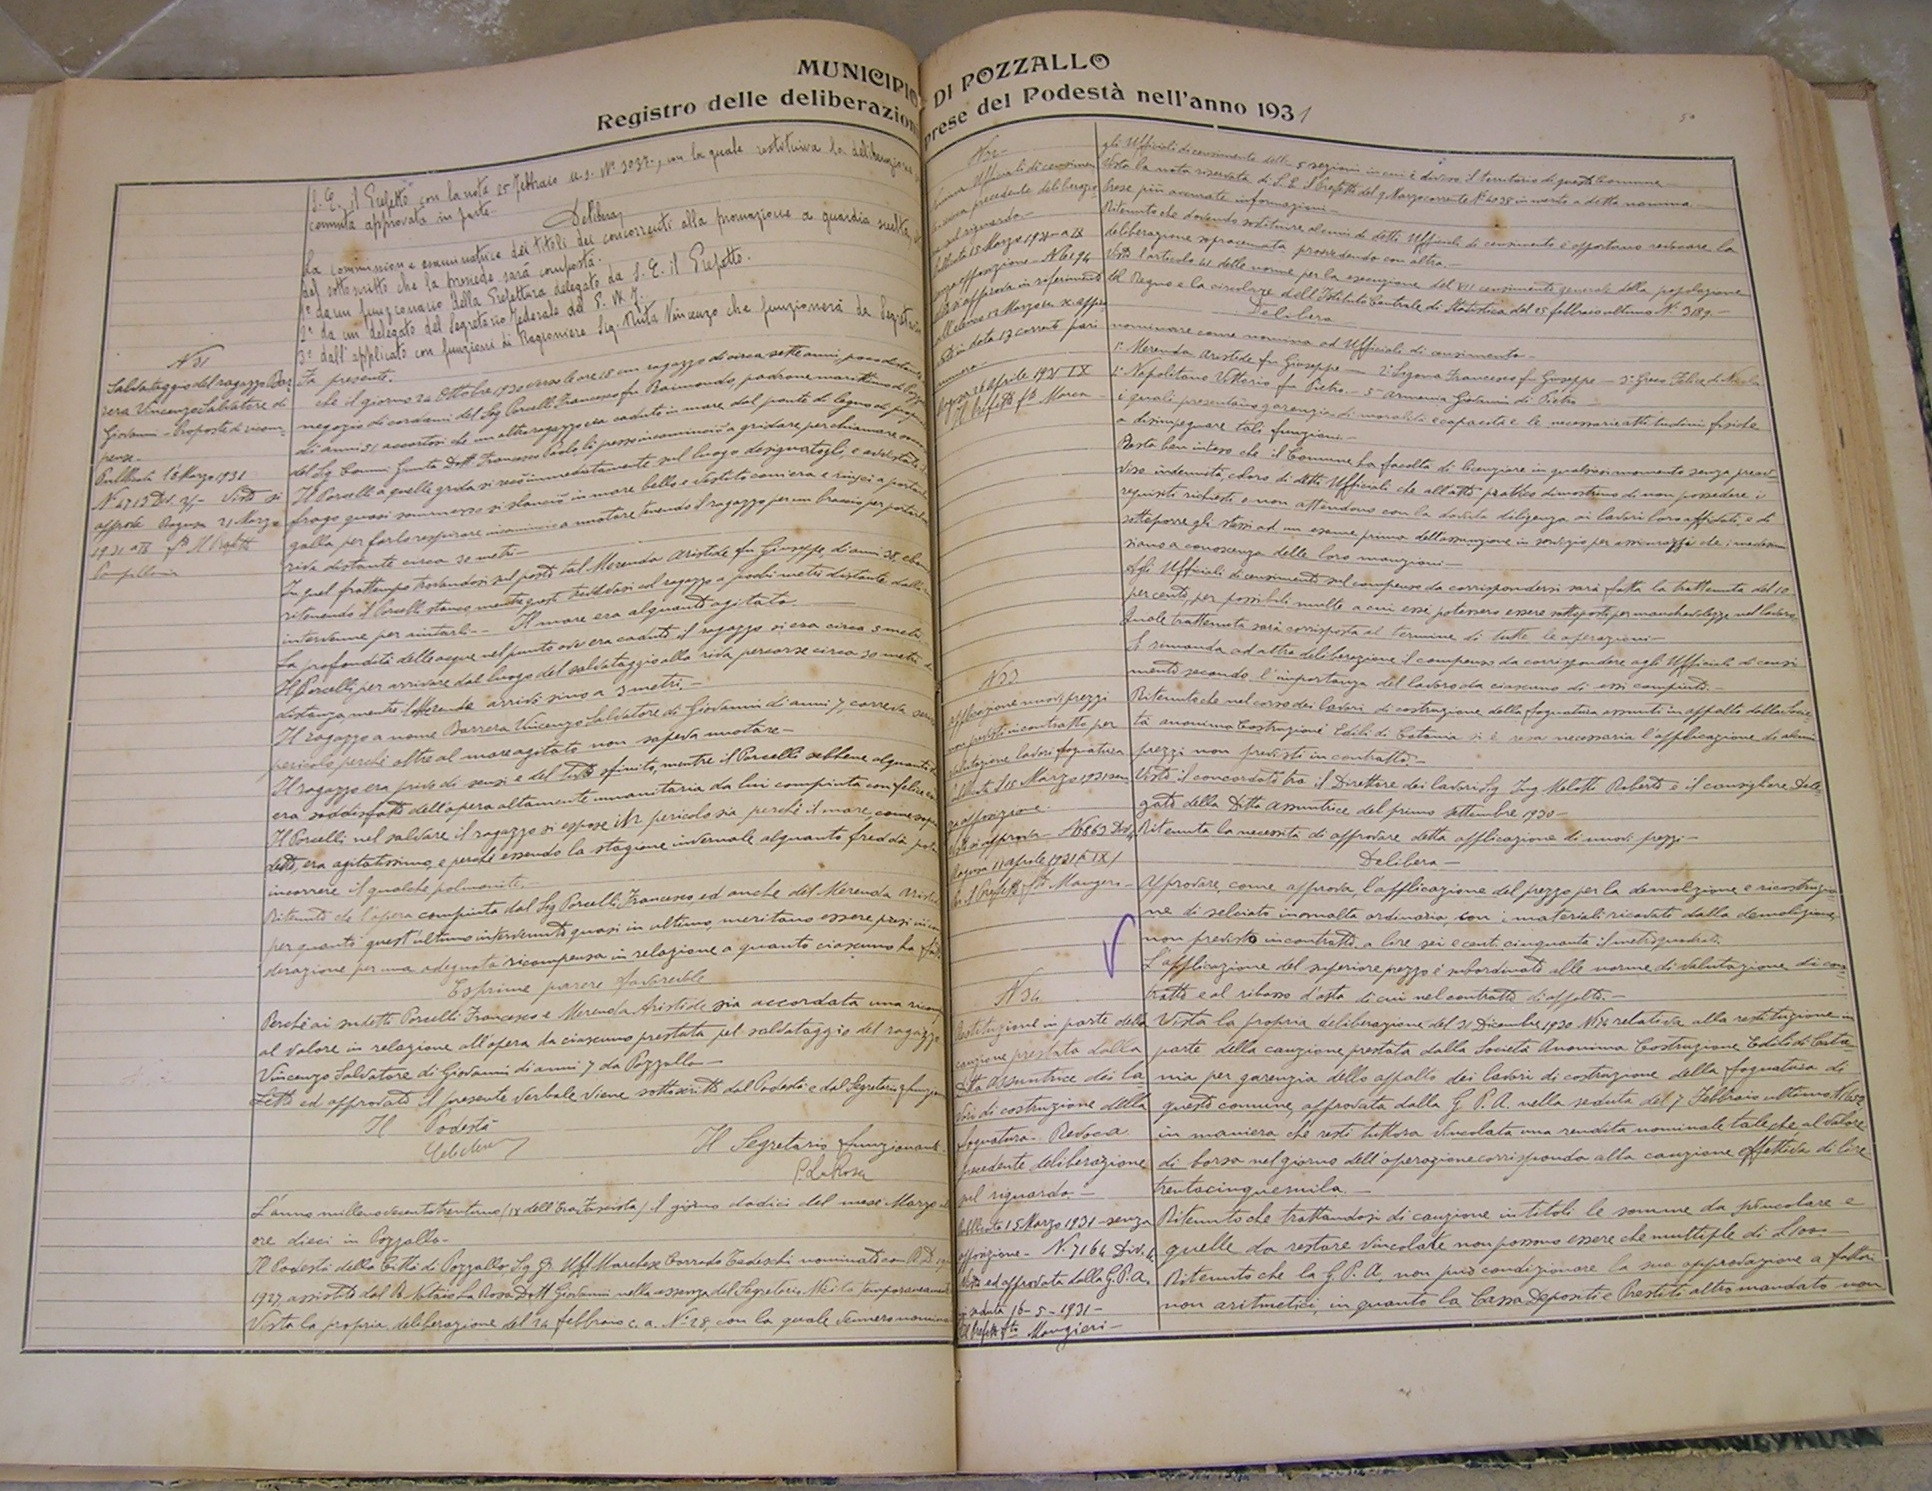 MUNICIPIO DI POZZALLO
Registro delle deliberazioni prese del Podestà nell'anno 1931
S. E. il Prefetto con la nota 25 Febbraio u.s. N° 3032, con la quale restituiva la deliberazione
approvata in parte
Delibera
La commissione esaminatrice dei titoli dei concorrenti alla promozione a guardia scelta,
del sottoscritto che la presiede sarà composta.
1° da un funzionario della Prefettura delegato da S. E. il Prefetto.
2° da un delegato del Segretario Federale del P. N. F.
3° dall'applicato con funzioni di Ragioniere Sig. Vincenzo che funzionerà da Segretario
N 31
Salvataggio del ragazzo Bar
rera Vincenzo Salvatore di
Giovanni - Proposte di ricom
pense.
Pubblicata 1° Marzo 1931
N 6715 Div. 2/ - Visto si
approva Ragusa 21 Marzo
1931 a IX
che il giorno 24 Ottobre 1930 verso le ore 18 un ragazzo di circa sette anni,
negozio di cordami del Sig Porcelli Francesco fu Raimondo, padrone marittimo di
di anni 51 accortosi che un altro ragazzo era caduto in mare dal ponte di legno di
del Sig Comm Giunta Dott Francesco Paolo lì presso incominciò a gridare per chiamare
Il Porcelli a quelle grida si recò immediatamente sul luogo designatogli,
frago quasi sommerso si slanciò in mare bello e vestito com'era e riuscì a portarlo
galla per farlo respirare incominciò a nuotare tenendo il ragazzo per un braccio per portarlo
riva distante circa 30 metri -
In quel frattempo trovandosi sul posto tal Merenda Aristide fu Giuseppe, di anni 38,
ritenendo il Porcelli stanco mentre questi trovavasi col ragazzo a pochi metri distante dalla
intervenne per aiutarli - Il mare era alquanto agitato.
La profondità delle acque nel punto ove era caduto il ragazzo si era circa 5 metri.
Il Porcelli, per arrivare dal luogo del salvataggio alla riva percorse circa 30 metri di
distanza, mentre il Merenda arrivò sino a 3 metri. -
Il ragazzo a nome Barrera Vincenzo Salvatore di Giovanni di anni 7, correva serio
pericolo perchè oltre al mare agitato non sapeva nuotare -
Il ragazzo era privo di sensi e del tutto sfinito, mentre il Porcelli sebbene alquanto
era soddisfatto dell'opera altamente umanitaria da lui compiuta con felice
Il Porcelli nel salvare il ragazzo si espose in pericolo sia perchè il mare, come sopra
detto, era agitatissimo, e perchè essendo la stagione invernale alquanto fredda
incorrere il qualche polmonite. -
Ritenuto che l'opera compiuta dal Sig Porcelli Francesco ed anche del Merenda Aristide
per quanto quest'ultimo intervenuto quasi in ultimo, meritano essere presi in consi
derazione per una adeguata ricompensa in relazione a quanto ciascuno ha
Esprime parere favorevole
Perchè ai sudetti Porcelli Francesco e Merenda Aristide sia accordata una ricompensa
al valore in relazione all'opera da ciascuno prestata pel salvataggio del ragazzo
Vincenzo Salvatore di Giovanni di anni 7 da Pozzallo -
Letto ed approvato il presente verbale viene sottoscritto dal Podestà e dal Segretario funzionante
Il Podestà
Il Segretario funzionante
La Rosa
L'anno millenovecentotrentuno (IX dell'Era Fascista) il giorno dodici del mese Marzo
ore dieci in Pozzallo -
Il Podestà della Città di Pozzallo Sig Gr Uff Marchese Corrado Tedeschi nominato con R. D.
1927, assistito dal Notaio La Rosa Dott Giovanni nella assenza del Segretario
Vista la propria deliberazione del 24 febbraio c. a. N° 28, con la quale
N 32
gli Ufficiali di censimento delle 5 sezioni in cui è diviso il territorio di questo Comune -
Vista la nota riservata di S. E. il Prefetto del 9 Marzo corrente N° 4038 in merito a detta nomina. -
Prese più accurate informazioni -
Ritenuto che dovendo sostituire alcuni di detti Ufficiali di censimento è opportuno revocare la
deliberazione sopracennata provvedendo con altra. -
Visto l'articolo 41 delle norme per la esecuzione del VII censimento generale della popolazione
del Regno e la circolare dell'Istituto Centrale di Statistica del 25 febbraio ultimo N. 3189. -
Delibera
nominare come nomina ad Ufficiali di censimento -
1° Merenda Aristide fu Giuseppe - 2° Sigona Francesco fu Giuseppe - 3° Greco Felice di
4° Napolitano Vittorio fu Pietro. - 5° Armenia Giovanni di Pietro -
i quali presentano garenzia di moralità e capacità e le necessarie attitudini fisiche
a disimpegnare tali funzioni -
Resta ben inteso che il Comune ha facoltà di licenziare in qualsiasi momento senza preav
viso indennità, coloro di detti Ufficiali che all'atto pratico dimostrino di non possedere i
requisiti richiesti o non attendono con la dovuta diligenza ai lavori loro affidati, e di
sottoporre gli stessi ad un esame prima dell'assunzione in servizio per assicurarsi che i medesimi
siano a conoscenza delle loro mansioni -
Agli Ufficiali di censimento sul compenso da corrispondersi sarà fatta la trattenuta del 10
per cento, per possibili multe a cui essi potessero essere sottoposti per manchevolezze nel lavoro,
quale trattenuta sarà corrisposta al termine di tutte le operazioni -
Si rimanda ad altra deliberazione il compenso da corrispondere agli Ufficiali di censi
mento secondo l'importanza del lavoro da ciascuno di essi compiuto. -
precedente deliberazione
sul riguardo -
Pubblicata 15 Marzo 1931 a IX
senza opposizione - N 6194
si approva in riferimento
Ragusa 26 Aprile 1931 IX
Il Prefetto fto Marca
N 33
Applicazione nuovi prezzi
non previsti in contratto per
valutazione lavori fognatura
Pubblicata il 15 Marzo 1931 sen
za opposizione.
Visto si approva - N 6863 Div 4
Ragusa 11 aprile 1931 (a IX)
Il Prefetto fto Mangeri -
Ritenuto che nel corso dei lavori di costruzione della fognatura assunti in appalto dalla Socie
tà anonima Costruzioni Edili di Catania si è resa necessaria l'applicazione di alcuni
prezzi non previsti in contratto -
Visto il concordato tra il Direttore dei lavori Sig Ing Melotti Roberto e il consigliere Dele
gato della Ditta assuntrice del primo settembre 1930 -
Ritenuta la necessità di approvare detta applicazione di nuovi prezzi -
Delibera -
Approvare, come approva, l'applicazione del prezzo per la demolizione e ricostruzio
ne di selciato in malta ordinaria, con i materiali ricavati dalla demolizione,
non previsto in contratto, a lire sei e cent. cinquanta il metro quadrato.
L'applicazione del superiore prezzo è subordinato alle norme di valutazione di con
tratto e al ribasso d'asta di cui nel contratto d'appalto. -
N 34
Restituzione in parte della
cauzione prestata dalla
Ditta assuntrice dei la
vori di costruzione della
fognatura. Revoca
precedente deliberazione
sul riguardo. -
Pubblicata 15 Marzo 1931 - senza
opposizione - N. 7164 Div. 4
Vista ed approvata dalla G.P.A.
in seduta 16-5-1931 -
Il Prefetto fto Mangieri -
Vista la propria deliberazione del 31 Dicembre 1930 N 174 relativa alla restituzione in
parte della cauzione prestata dalla Società Anonima Costruzione Edili di Cata
nia per garenzia dello appalto dei lavori di costruzione della fognatura di
questo comune, approvata dalla G. P. A. nella seduta del 7 Febbraio ultimo
in maniera che resti tuttora vincolata una rendita nominale tale che al valore
di borsa nel giorno dell'operazione corrisponda alla cauzione effettiva di lire
trentacinquemila. -
Ritenuto che trattandosi di cauzione in titoli le somme da svincolare e
quelle da restare vincolate non possono essere che multiple di L. 100
Ritenuto che la G. P. A. non può condizionare la sua approvazione a fattori
non aritmetici, in quanto la Cassa Depositi e Prestiti altro mandato non